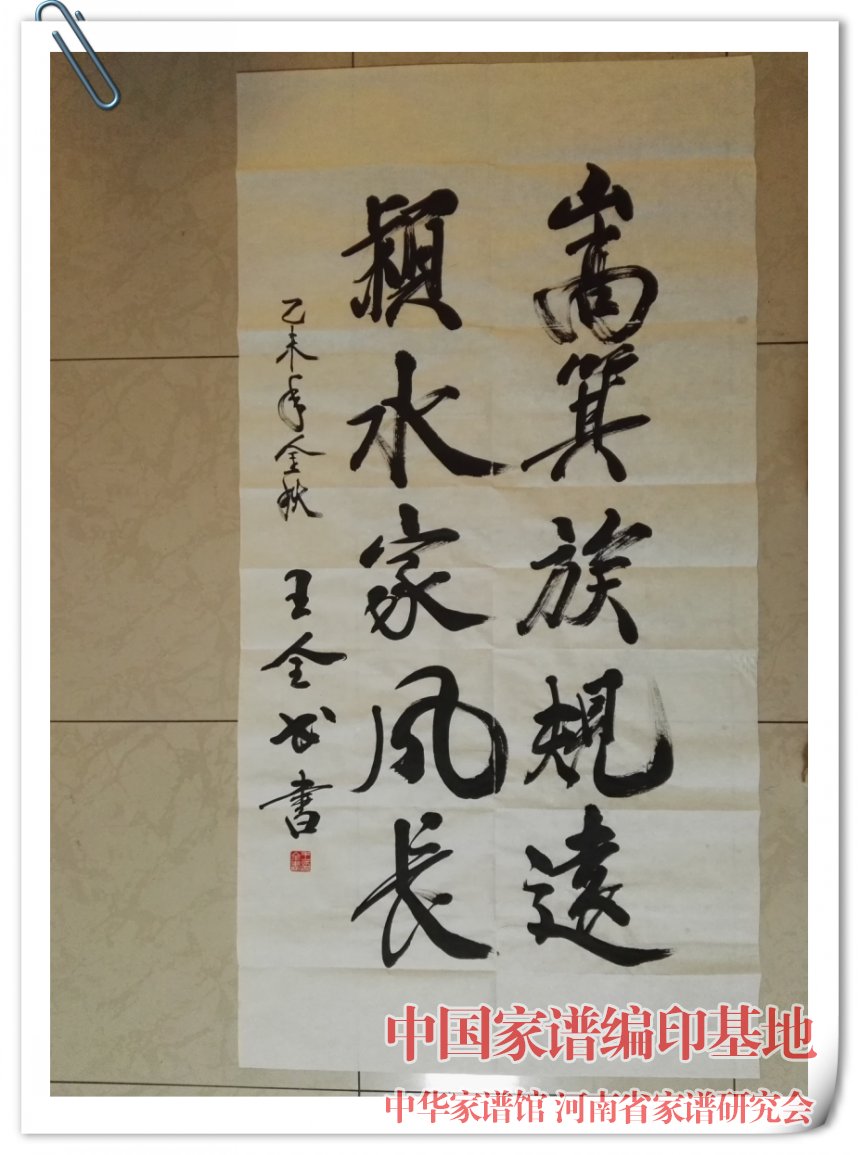 嵩箕族规遠
颍水家风长
乙未年金秋
王全书書
中国家谱编印基地
中华家谱馆 河南省家谱研究会